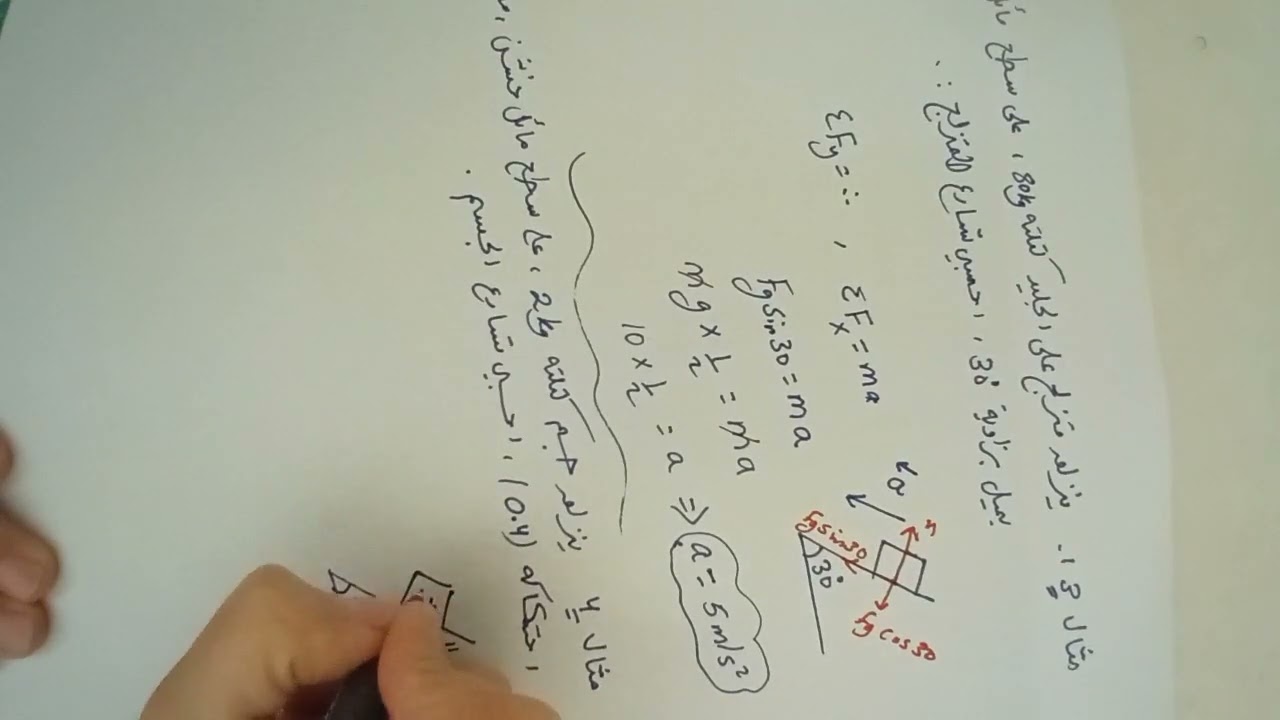 مثال 3 . ينزلق متزلج على الجليد كتلته 80kg ، على سطح
يميل بزاوية 30° ، احسبي تسارع المتزلج :.
ΣFy = 0 , ΣFx = ma
Fg sin 30 = ma
mg × 1/2 = ma
10 × 1/2 = a ⇒ a = 5 m/s²
a
n
Fg sin 30
30°
Fg cos 30
مثال 4 ينزلق جسم كتلته 2kg ، على سطح مائل خشن ،
احتكاكه (0.4) ، احسبي تسارع الجسم .